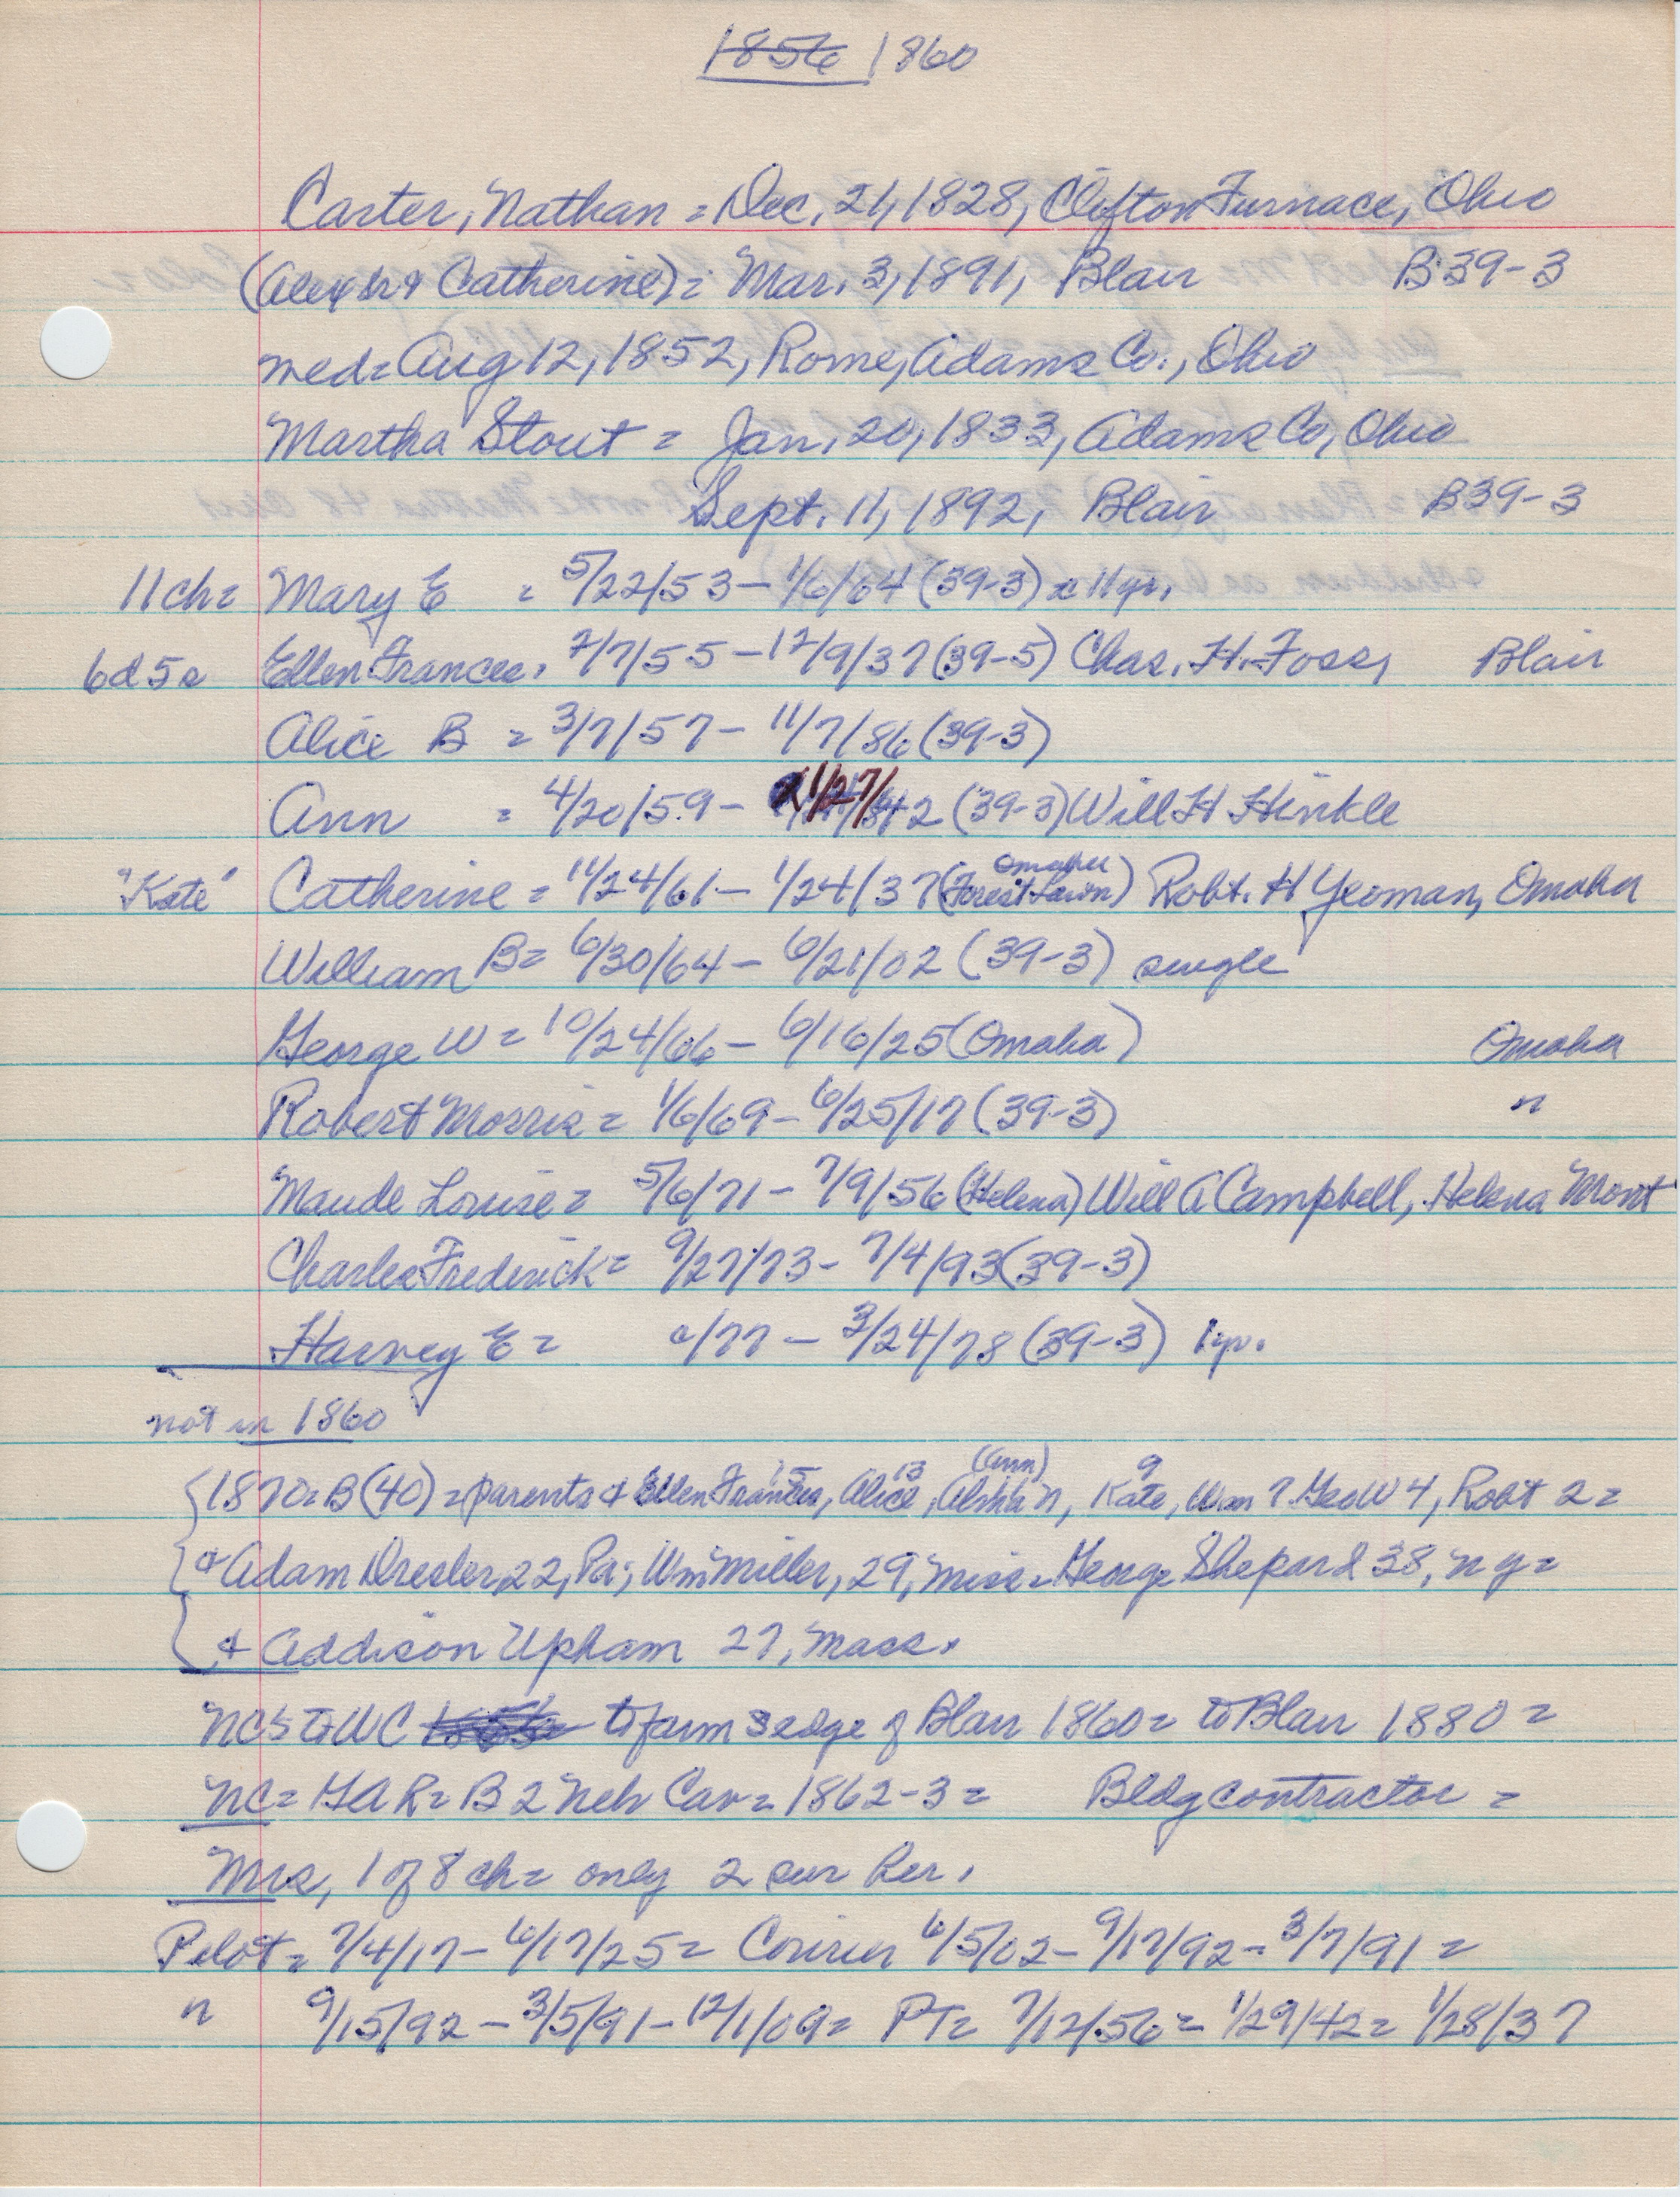 1856 1860
Carter, Nathan = Dec. 21, 1828, Clifton Furnace, Ohio
& Catherine) = Mar. 3, 1891, Blair B39-3
med = Aug 12, 1852, Rome, Adams Co., Ohio
Martha Stout = Jan. 20, 1833, Adams Co, Ohio
Sept. 11, 1892, Blair B39-3
11 ch = Mary E = 5/22/53 - 1/6/64 (39-3) 11 yr.
6d 5s Ellen Frances, 2/7/55 - 12/9/37 (39-5) Chas. H. Foss, Blair
Alice B = 3/7/57 - 11/7/86 (39-3)
Ann = 4/20/59 - 1/27/42 (39-3) Will H Hinkle
"Kate" Catherine = 11/24/61 - 1/24/37 (Forest Lawn) Omaha Robt. H Yeoman, Omaha
William B = 6/30/64 - 6/21/02 (39-3) single
George W = 10/24/66 - 6/16/25 (Omaha) Omaha
Robert Morris = 1/6/69 - 6/25/17 (39-3) "
Maude Louise = 5/6/71 - 7/9/56 (Helena) Will A Campbell, Helena Mont
Charles Frederick = 9/27/73 - 7/4/93 (39-3)
Harvey E = c/77 - 3/24/78 (39-3) 1 yr.
not in 1860
1870 = B (40) = parents & Ellen Frances 15, Alice 13, (Ann) 11, Kate 9, Wm 7, Geo W 4, Robt 2 =
& Adam Dresler, 22, Pa; Wm Miller, 29, Miss = George Shepard 38, NY =
& Addison Upham 27, Mass.
NCs to WC to farm S edge of Blair 1860 = to Blair 1880 =
NC = GAR = B 2 Neb Cav = 1862-3 = Bldg contractor =
Mrs, 1 of 8 ch = only 2 sur her.
Pilot = 7/4/17 - 6/17/25 = Courier 6/5/02 - 9/17/92 - 3/7/91 =
" 9/15/92 - 3/5/91 - 12/1/09 = PT = 7/12/56 = 1/29/42 = 1/28/37